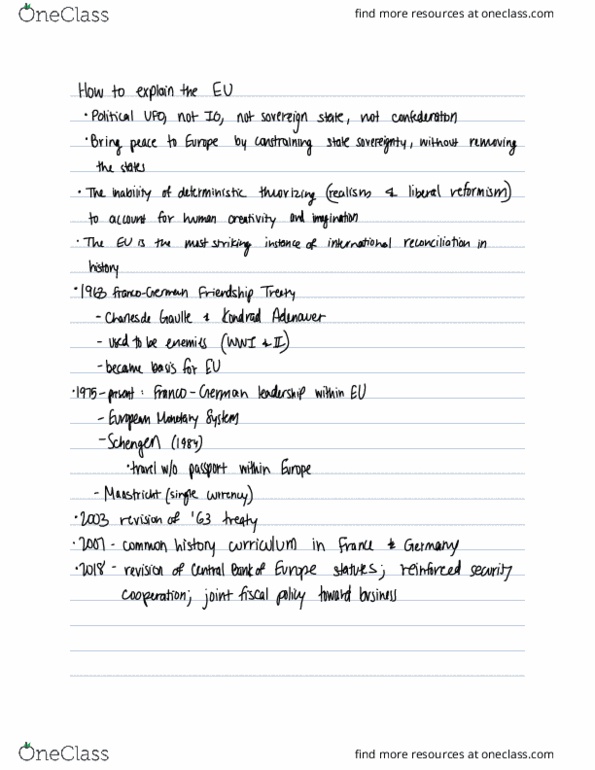 OneClass
find more resources at oneclass.com
How to explain the EU
• Political UFO, not IO, not sovereign state, not confederation
• Bring peace to Europe by constraining state sovereignty, without removing
the states
• The inability of deterministic theorizing (realism & liberal reformism)
to account for human creativity and imagination
• The EU is the most striking instance of international reconciliation in
history
• 1963 Franco-German Friendship Treaty
- Charles de Gaulle & Kondrad Adenauer
- used to be enemies (WWI & II)
- became basis for EU
• 1975-present: Franco-German leadership within EU
- European Monetary System
- Schengen (1984)
• travel w/o passport within Europe
- Maastricht (single currency)
• 2003 revision of '63 treaty
• 2007 - common history curriculum in France & Germany
• 2018 - revision of Central Bank of Europe statutes; reinforced security
cooperation; joint fiscal policy toward business
OneClass
find more resources at oneclass.com